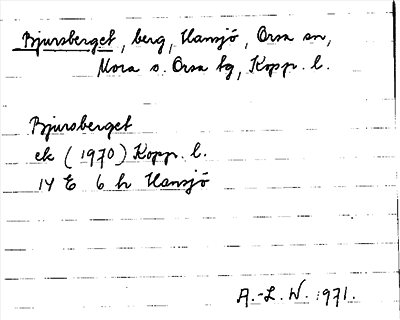 Bjursberget, berg, Hansjö, Orsa sn,
Mora o. Orsa tg, Kopp. l.
Bjursberget
ek (1970) Kopp. l.
14 E 6 h Hansjö
A.-L. W. 1971.